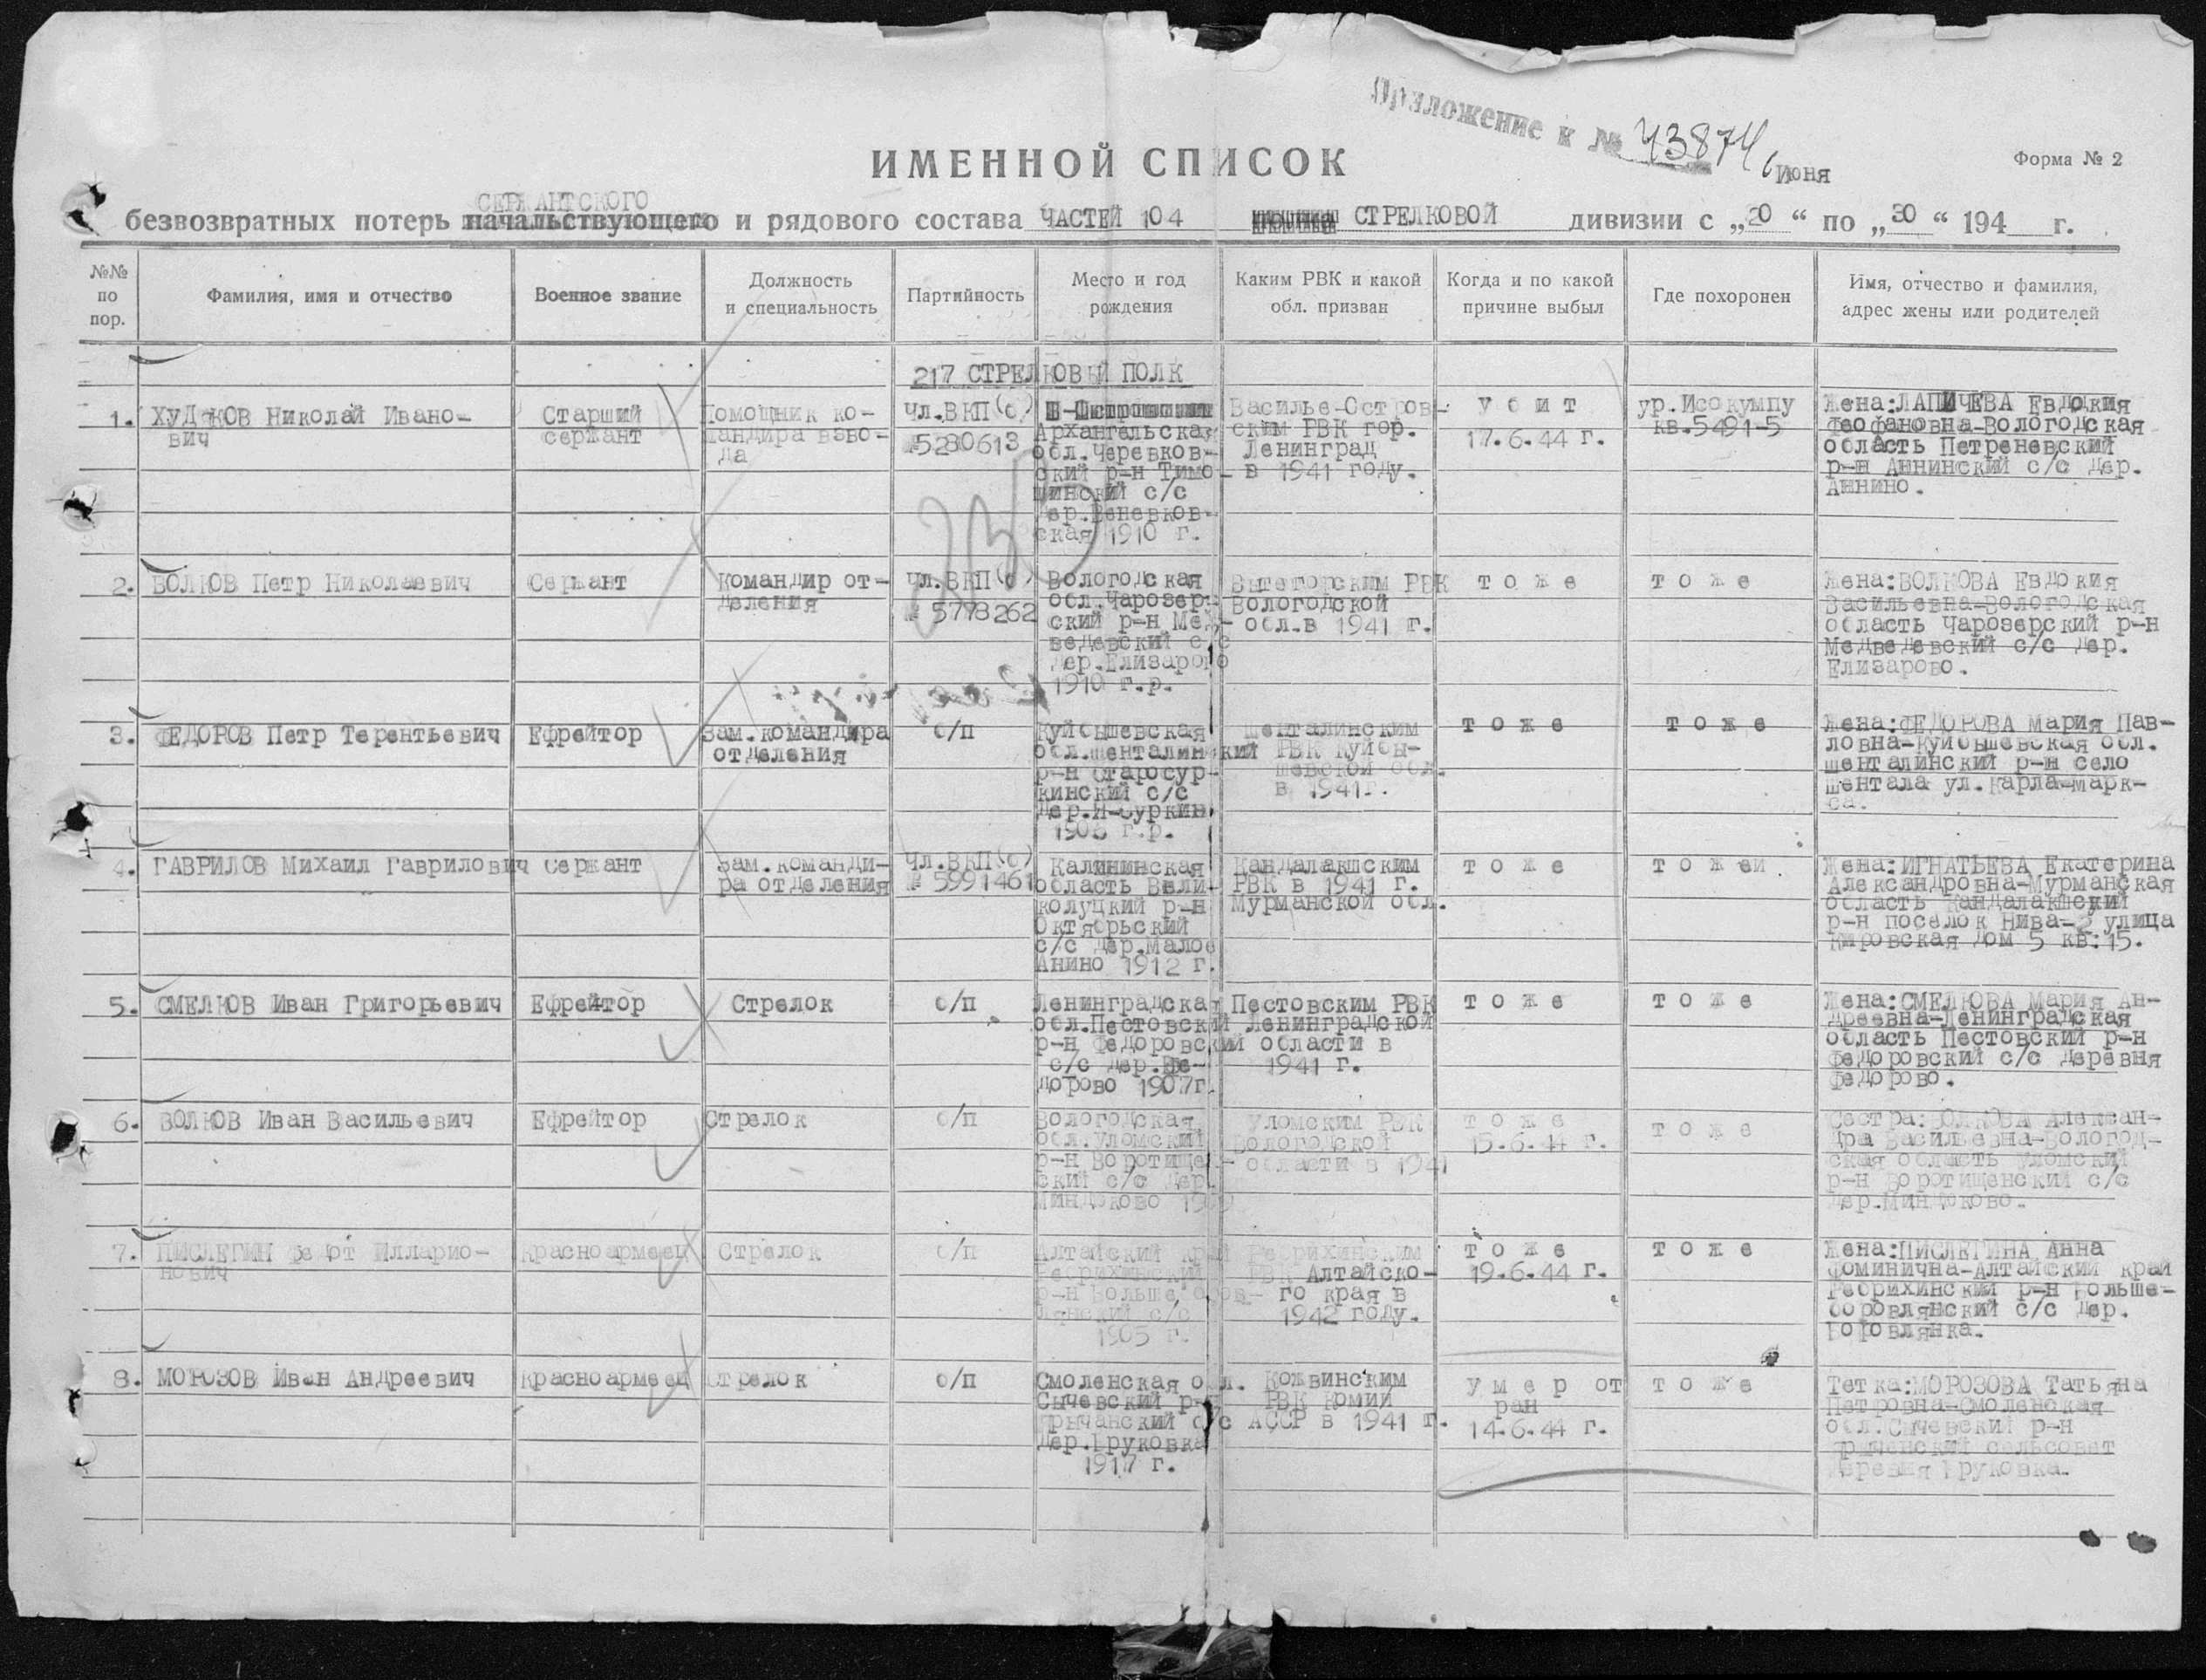 Приложение к № 43874
ИМЕННОЙ СПИСОК
Июня
Форма № 2
СЕРЖАНТСКОГО
безвозвратных потерь начальствующего и рядового состава ЧАСТЕЙ 104 СТРЕЛКОВОЙ дивизии с „20“ по „30“ 194 г.
№№ по пор.
Фамилия, имя и отчество
Военное звание
Должность и специальность
Партийность
Место и год рождения
Каким РВК и какой обл. призван
Когда и по какой причине выбыл
Где похоронен
Имя, отчество и фамилия, адрес жены или родителей
217 СТРЕЛКОВЫЙ ПОЛК
1.
ХУДЯКОВ Николай Ивано-
вич
Старший
сержант
Помощник ко-
мандира взво-
да
Чл.ВКП(б)
№5280613
Архангельская
обл.Черевков-
ский р-н Тимо-
шинский с/с
дер.Веневков-
ская 1910 г.
Василье-Остров-
ским РВК гор.
Ленинград
в 1941 году.
убит
17.6.44 г.
ур.Исокумпу
кв.5491-5
Жена:ЛАПИЧЕВА Евдокия
Феофановна-Вологодская
область Петреневский
р-н Аннинский с/с дер.
Аннино.
2.
ВОЛКОВ Петр Николаевич
Сержант
Командир от-
деления
Чл.ВКП(б)
№ 5778262
Вологодская
обл.Чарозер-
ский р-н Мед-
ведевский с/с
дер.Елизарово
1910 г.р.
Вытегорским РВК
Вологодской
обл.в 1941 г.
тоже
тоже
Жена:ВОЛКОВА Евдокия
Васильевна-Вологодская
область Чарозерский р-н
Медведевский с/с дер.
Елизарово.
3.
ФЕДОРОВ Петр Терентьевич
Ефрейтор
Зам.командира
отделения
б/п
Куйбышевская
обл.Шенталинский
р-н Старосур-
кинский с/с
дер.Н-Суркин
г.р.
Шенталинским
РВК Куйбы-
шевской обл.
в 1941г.
тоже
тоже
Жена:ФЕДОРОВА Мария Пав-
ловна-Куйбышевская обл.
Шенталинский р-н село
Шентала ул.Карла-Марк-
са.
4.
ГАВРИЛОВ Михаил Гаврилович
Сержант
Зам.команди-
ра отделения
Чл.ВКП(б)
№ 5991461
Калининская
область Вели-
колуцкий р-н
Октябрьский
с/с дер.Малое
Анино 1912 г.
Кандалакшским
РВК в 1941 г.
Мурманской обл.
тоже
тожей
Жена:ИГНАТЬЕВА Екатерина
Александровна-Мурманская
область Кандалакшский
р-н поселок Нива-2 улица
Кировская дом 5 кв.15.
5.
СМЕЛКОВ Иван Григорьевич
Ефрейтор
Стрелок
б/п
Ленинградская
обл.Пестовский
р-н Федоровский
с/с дер.Фе-
дорово 1907г.
Пестовским РВК
Ленинградской
области в
1941 г.
тоже
тоже
Жена:СМЕЛКОВА Мария Ан-
дреевна-Ленинградская
область Пестовский р-н
Федоровский с/с деревня
Федорово.
6.
ВОЛКОВ Иван Васильевич
Ефрейтор
Стрелок
б/п
Вологодская
обл.Уломский
р-н Воротище-
ский с/с дер.
Миндюково
Уломским РВК
Вологодской
области в 1941
тоже
15.6.44 г.
тоже
Сестра:ВОЛКОВА Алексан-
дра Васильевна-Вологод-
ская область Уломский
р-н Воротищенский с/с
дер.Миндюково.
7.
ПИСЛЕГИН Федот Илларио-
нович
Красноармеец
Стрелок
б/п
Алтайский край
Ребрихинский
р-н Больше боров-
лянский с/с
1905 г.
Ребрихинским
РВК Алтайско-
го края в
1942 году.
тоже
19.6.44 г.
тоже
Жена:ПИСЛЕГИНА Анна
Фоминична-Алтайский край
Ребрихинский р-н Больше-
боровлянский с/с дер.
Боровлянка.
8.
МОРОЗОВ Иван Андреевич
Красноармеец
Стрелок
б/п
Смоленская обл.
Сычевский р-н
с/с
дер.Круковка
1917 г.
Кожвинским
РВК Комий
АССР в 1941 г.
умер от
ран
14.6.44 г.
тоже
Тетка:МОРОЗОВА Татьяна
Петровна-Смоленская
обл.Сычевский р-н
сельсовет
деревня Круковка.